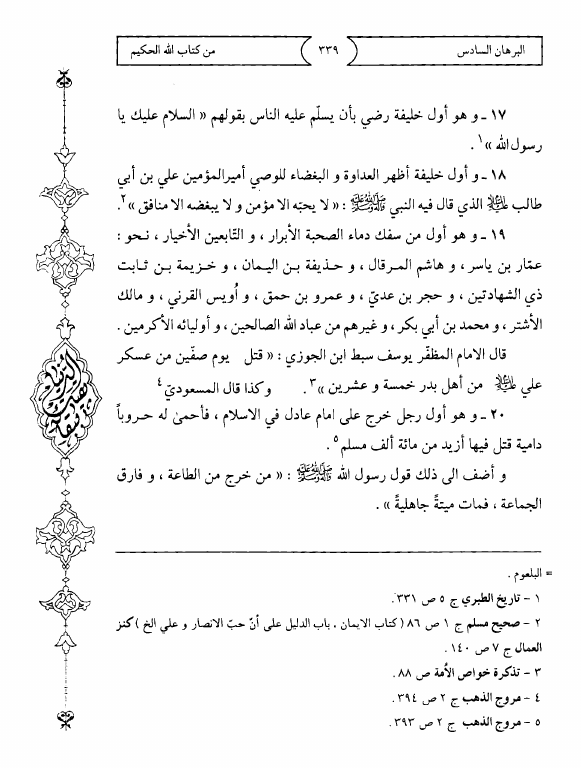 البرهان السادس ٣٣٩ من كتاب الله الحكيم
١٧ ـ و هو أول خليفة رضي بأن يسلّم عليه الناس بقولهم « السلام عليك يا
رسول الله »١.
١٨ ـ و أول خليفة أظهر العداوة و البغضاء للوصي أميرالمؤمنين علي بن أبي
طالب عليه السلام الذي قال فيه النبي صلى الله عليه وآله وسلم : « لا يحبّه الا مؤمن و لا يبغضه الا منافق »٢.
١٩ ـ و هو أول من سفك دماء الصحبة الأبرار ، و التّابعين الأخيار ، نحو :
عمّار بن ياسر ، و هاشم المرقال ، و حذيفة بن اليمان ، و خزيمة بن ثابت
ذي الشهادتين ، و حجر بن عديّ ، و عمرو بن حمق ، و اُويس القرني ، و مالك
الأشتر ، و محمد بن أبي بكر ، و غيرهم من عباد الله الصالحين ، و أوليائه الأكرمين .
قال الامام المظفّر يوسف سبط ابن الجوزي : « قتل يوم صفّين من عسكر
علي عليه السلام من أهل بدر خمسة و عشرين »٣. وكذا قال المسعوديّ٤
٢٠ ـ و هو أول رجل خرج على امام عادل في الاسلام ، فأحمىٰ له حروباً
دامية قتل فيها أزيد من مائة ألف مسلم٥.
و أضف الى ذلك قول رسول الله صلى الله عليه وآله وسلم : « من خرج من الطاعة ، و فارق
الجماعة ، فمات ميتةً جاهليةً » .
= البلعوم .
١ - تاريخ الطبري ج ٥ ص ٣٣١.
٢ - صحيح مسلم ج ١ ص ٨٦ ( كتاب الايمان . باب الدليل على أنّ حبّ الانصار و علي الخ ) كنز
العمال ج ٧ ص ١٤٠ .
٣ - تذكرة خواص الأمة ص ٨٨.
٤ - مروج الذهب ج ٢ ص ٣٩٤.
٥ - مروج الذهب ج ٢ ص ٣٩٣.